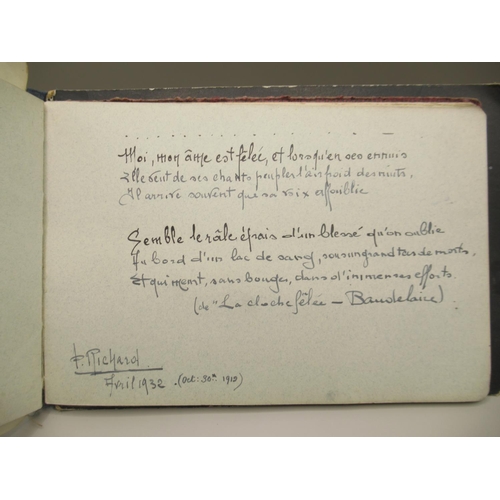 . . . . . . . . . . . . . . . . . . . .
Moi, mon âme est fêlée, et lorsqu'en ses ennuis
Elle veut de ses chants peupler l'air froid des nuits,
Il arrive souvent que sa voix affaiblie
Semble le râle épais d'un blessé qu'on oublie
Au bord d'un lac de sang, sous un grand tas de morts,
Et qui meurt, sans bouger, dans d'immenses efforts.
(de "La cloche fêlée – Baudelaire)
P. Richard.
Avril 1932 . (Oct: 30th 1913)